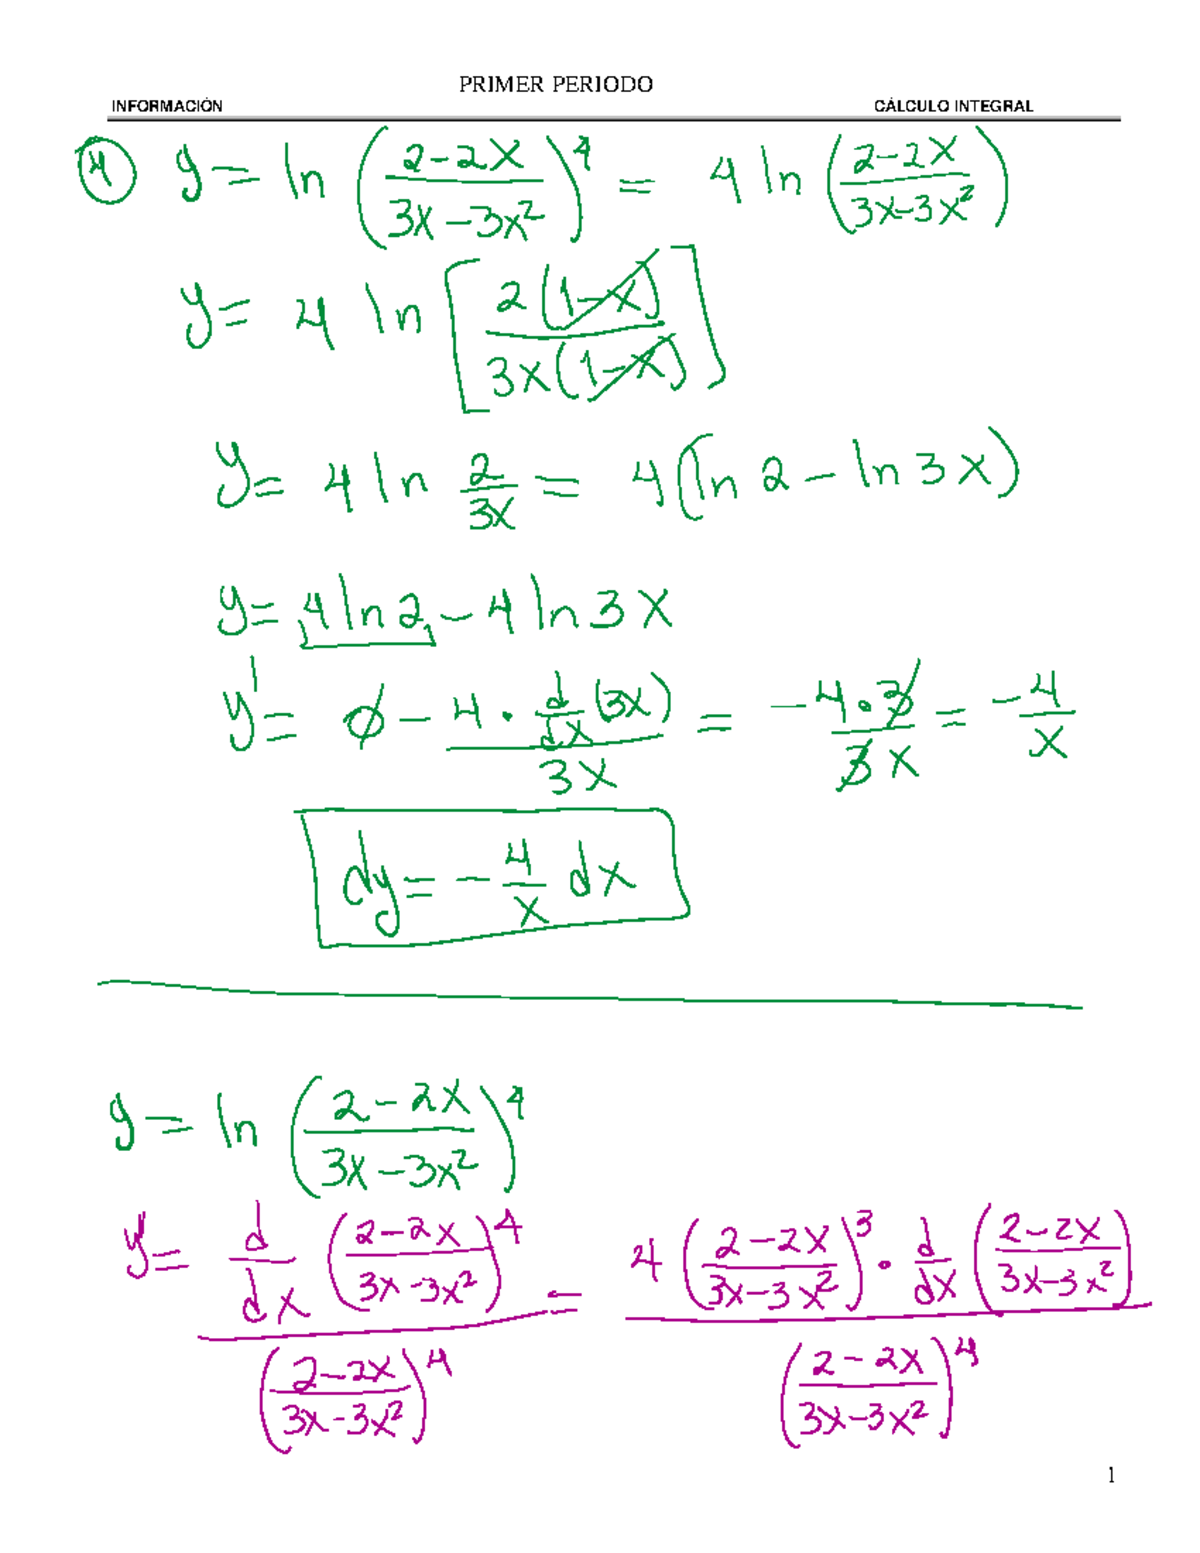 PRIMER PERIODO
INFORMACIÓN CÁLCULO INTEGRAL
4 y = ln ((2-2x)/(3x-3x²))⁴ = 4 ln ((2-2x)/(3x-3x²))
y = 4 ln [2(1-x)/3x(1-x)]
y = 4 ln 2/3x = 4(ln 2 - ln 3x)
y = 4 ln 2 - 4 ln 3x
y' = 0 - 4 · d/dx (3x) / 3x = -4·3/3x = -4/x
dy = -4/x dx
y = ln ((2-2x)/(3x-3x²))⁴
y' = d/dx ((2-2x)/(3x-3x²))⁴ / ((2-2x)/(3x-3x²))⁴ = 4 ((2-2x)/(3x-3x²))³ · d/dx ((2-2x)/(3x-3x²)) / ((2-2x)/(3x-3x²))⁴
1